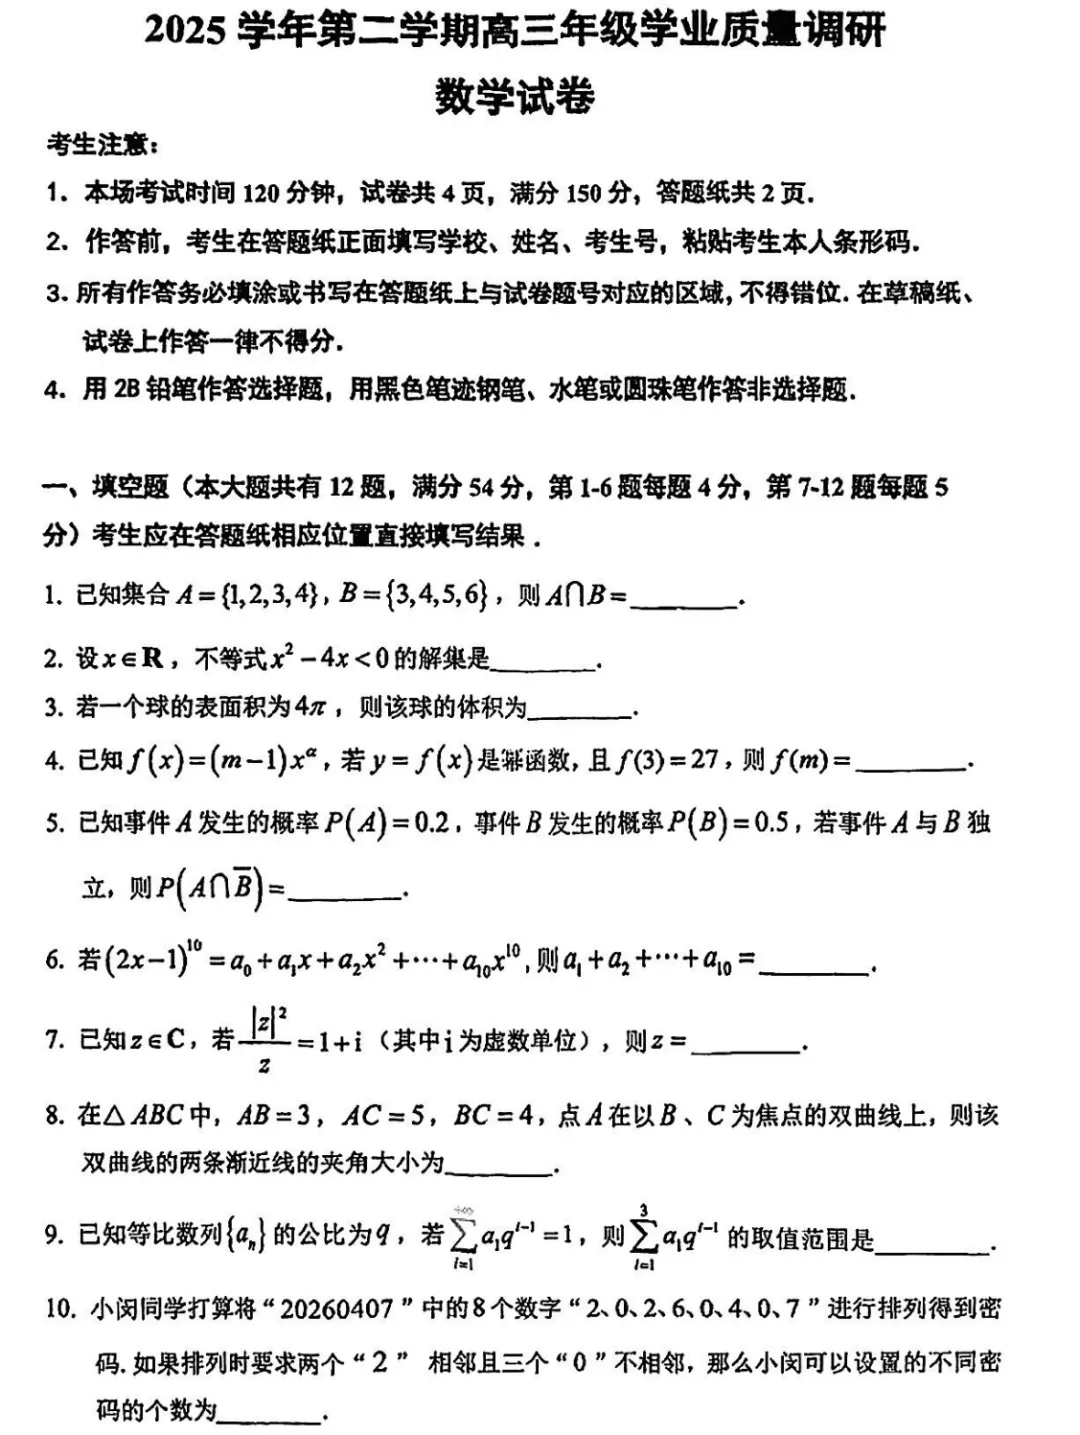 2025学年第二学期高三年级学业质量调研
数学试卷
考生注意：
1．本场考试时间120分钟，试卷共4页，满分150分，答题纸共2页．
2．作答前，考生在答题纸正面填写学校、姓名、考生号，粘贴考生本人条形码．
3．所有作答务必填涂或书写在答题纸上与试卷题号对应的区域，不得错位．在草稿纸、
试卷上作答一律不得分．
4．用2B铅笔作答选择题，用黑色笔迹钢笔、水笔或圆珠笔作答非选择题．
一、填空题（本大题共有12题，满分54分，第1-6题每题4分，第7-12题每题5
分）考生应在答题纸相应位置直接填写结果．
1. 已知集合 A={1,2,3,4}, B={3,4,5,6}，则 A∩B=________.
2. 设 x∈R，不等式 x²−4x<0 的解集是________.
3. 若一个球的表面积为4π，则该球的体积为________.
4. 已知 f(x)=(m−1)x^α，若 y=f(x) 是幂函数，且 f(3)=27，则 f(m)=________.
5. 已知事件 A 发生的概率 P(A)=0.2，事件 B 发生的概率 P(B)=0.5，若事件 A 与 B 独
立，则 P(A∩B̅)=________.
6. 若 (2x−1)¹⁰=a₀+a₁x+a₂x²+⋯+a₁₀x¹⁰, 则 a₁+a₂+⋯+a₁₀=________.
7. 已知 z∈C，若 |z|²/z=1+i（其中 i 为虚数单位），则 z=________.
8. 在△ABC 中，AB=3，AC=5，BC=4，点 A 在以 B、C 为焦点的双曲线上，则该
双曲线的两条渐近线的夹角大小为________.
9. 已知等比数列{aₙ}的公比为 q，若 ∑_{i=1}^{+∞} a₁q^{i−1}=1，则 ∑_{i=1}^{3} a₁q^{i−1} 的取值范围是________.
10. 小闵同学打算将“20260407”中的8个数字“2、0、2、6、0、4、0、7”进行排列得到密
码．如果排列时要求两个“2”相邻且三个“0”不相邻，那么小闵可以设置的不同密
码的个数为________.